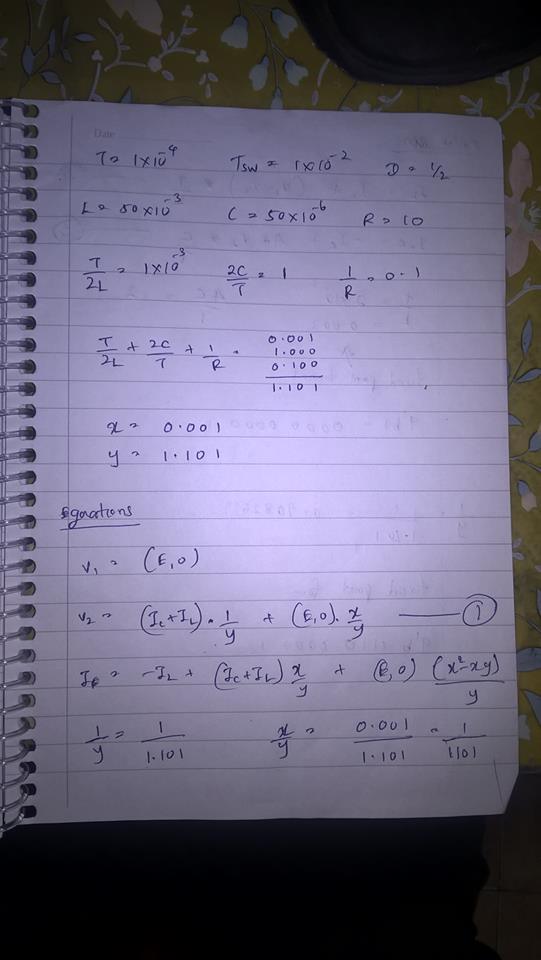 Date
T = 1×10⁻⁴ Tsw = 1×10⁻² D = 1/2
L = 50×10⁻³ C = 50×10⁻⁶ R = 10
T/2L = 1×10⁻³ 2C/T = 1 1/R = 0.1
T/2L + 2C/T + 1/R = 0.001
1.000
0.100
1.101
x = 0.001
y = 1.101
Equations
V₁ = (E,0)
V₂ = (Ic+IL).1/y + (E,0).x/y —— ①
IE = -IL + (Ic+IL) x/y + (E,0) (x²-xy)/y
1/y = 1/1.101 x/y = 0.001/1.101 = 1/1101